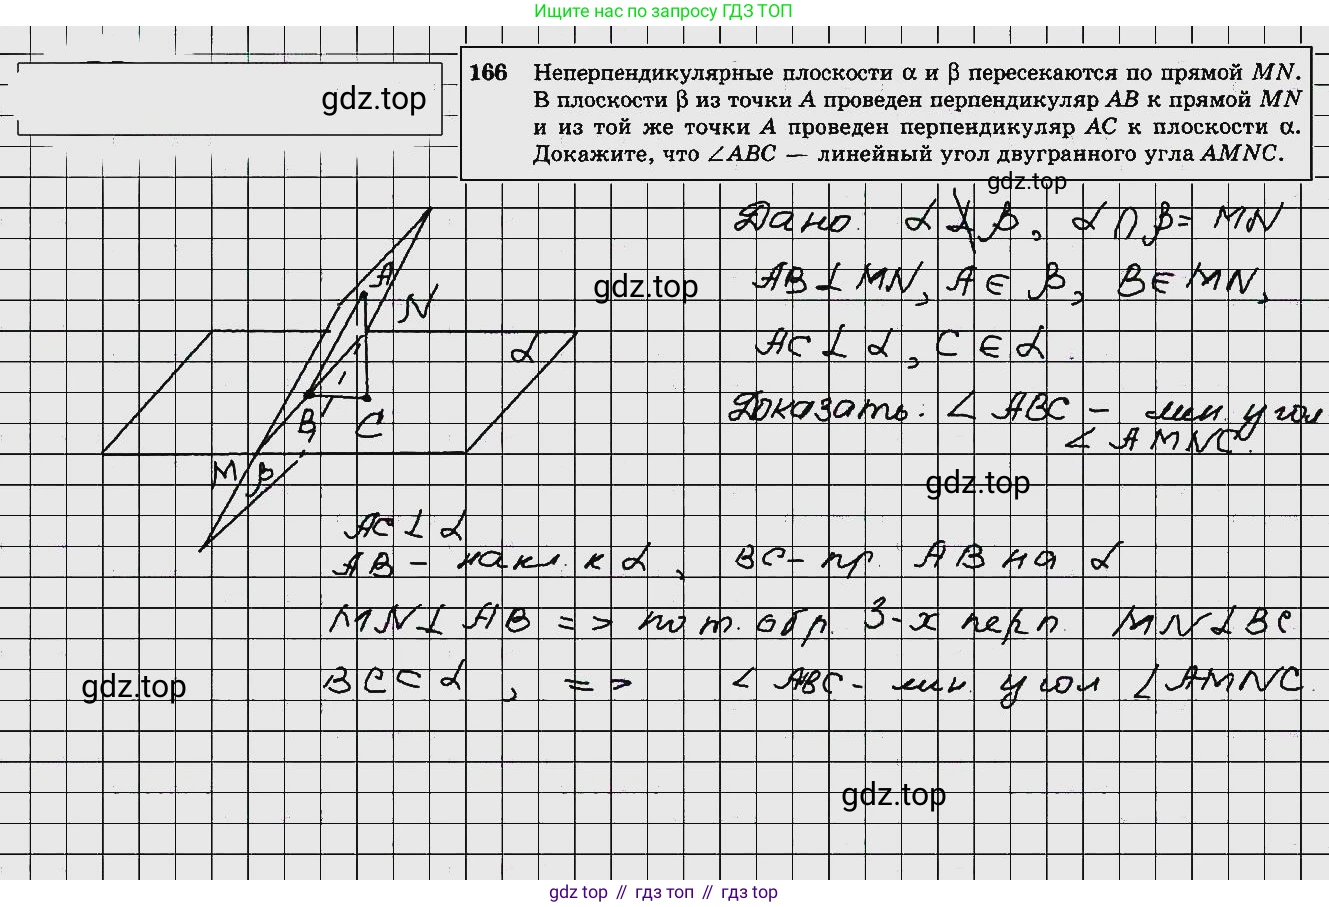 Ищите нас по запросу ГДЗ ТОП
gdz.top
166 Неперпендикулярные плоскости α и β пересекаются по прямой MN.
В плоскости β из точки A проведен перпендикуляр AB к прямой MN
и из той же точки A проведен перпендикуляр AC к плоскости α.
Докажите, что ∠ABC — линейный угол двугранного угла AMNC.
gdz.top
Дано: α ⊥̸ β, α ∩ β = MN
AB ⊥ MN, A ∈ β, B ∈ MN,
gdz.top
AC ⊥ α, C ∈ α
Доказать: ∠ ABC – лин. угол
∠ AMNC.
A
N
α
B
C
M
β
gdz.top
AC ⊥ α
AB – накл. к α, BC – пр. AB на α
MN ⊥ AB => по т. обр. 3-х перп. MN ⊥ BC
BC ⊂ α, => ∠ ABC – лин. угол ∠ AMNC.
gdz.top
gdz.top
gdz top // гдз топ // gdz top